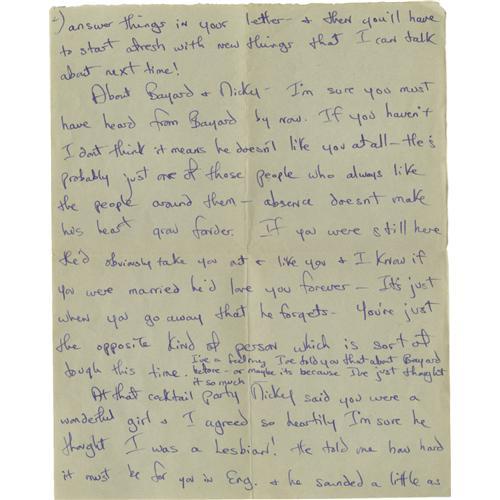 2) answer things in your letter - & then you'll have
to start afresh with new things that I can talk
about next time!
About Bayard & Nicky - I'm sure you must
have heard from Bayard by now. If you haven't
I don't think it means he doesn't like you at all - He's
probably just one of those people who always like
the people around them - absence doesn't make
his heart grow fonder. If you were still here
he'd obviously take you out & like you & I know if
you were married he'd love you forever - It's just
when you go away that he forgets - You're just
the opposite kind of person which is sort of
tough this time. I've a feeling I've told you that about Bayard
before - or maybe its because I've just thought
it so much
At that cocktail party Nicky said you were a
wonderful girl & I agreed so heartily I'm sure he
thought I was a Lesbian! He told me how hard
it must be for you in Eng. & he sounded a little as